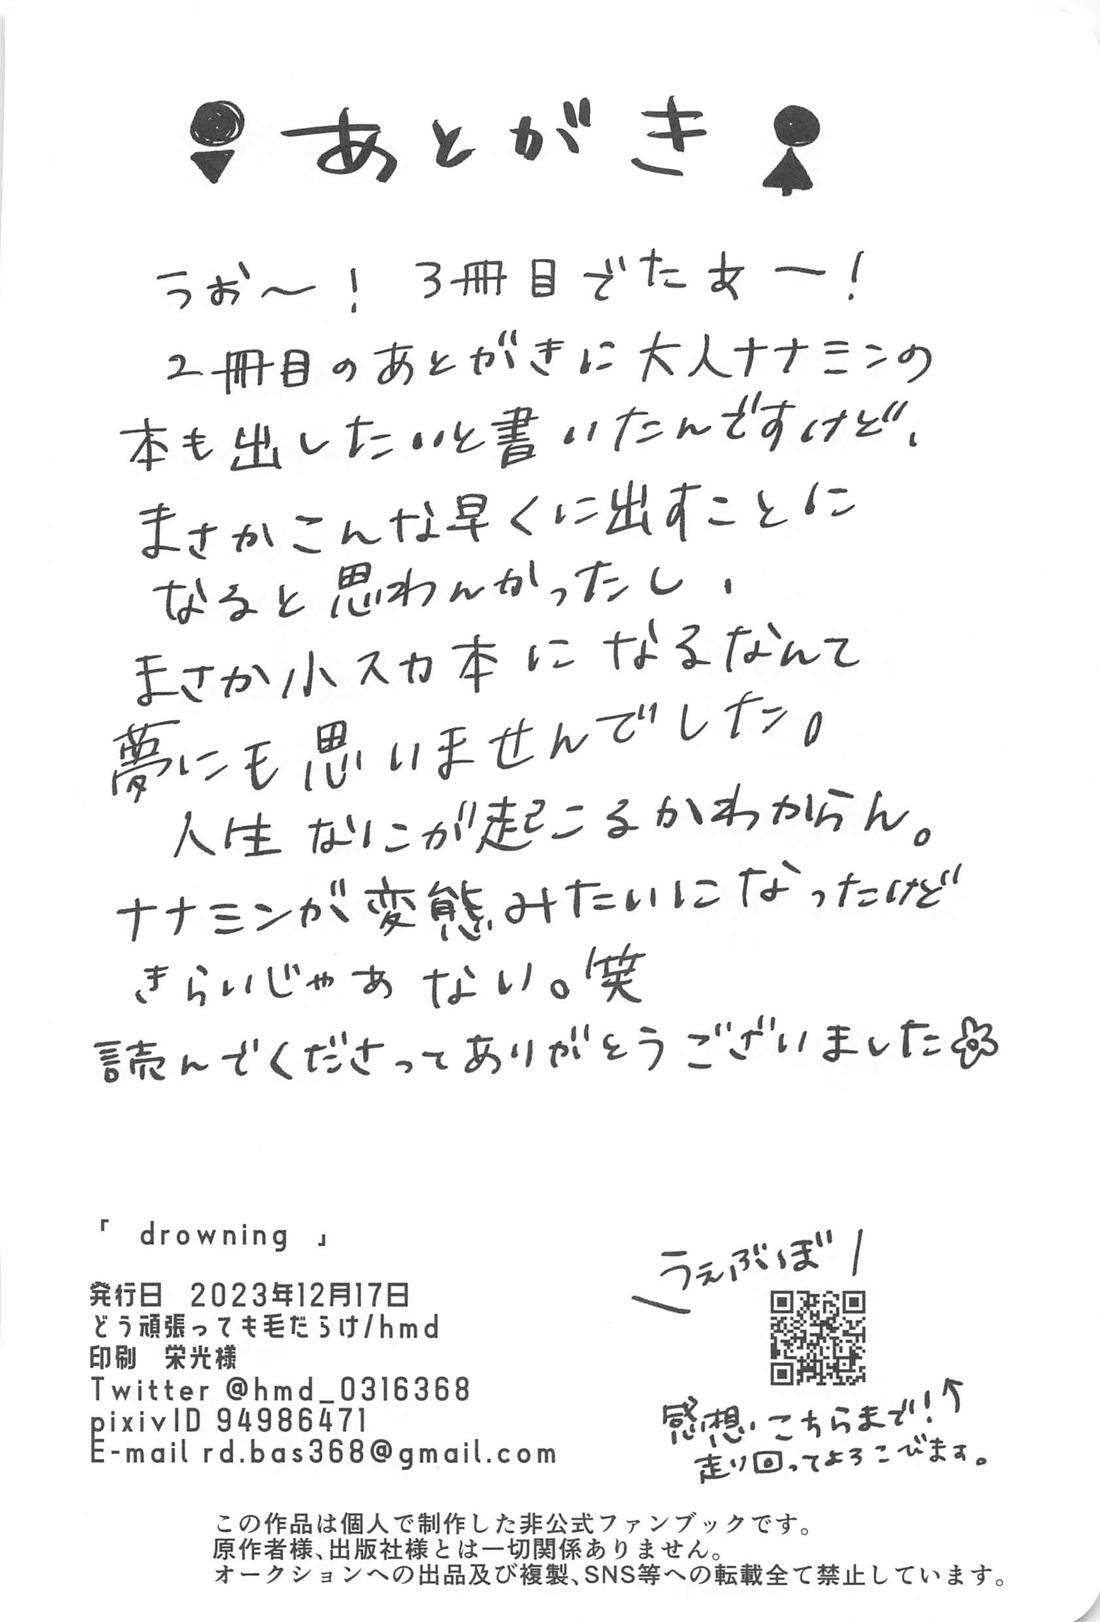 あとがき
うお〜！ 3冊目でたぁ〜！
2冊目のあとがきに大人ナナミンの
本も出したいと書いたんですけど、
まさかこんな早くに出すことに
なると思わんかったし、
まさか小スカ本になるなんて
夢にも思いませんでした。
人生なにが起こるかわからん。
ナナミンが変態みたいになったけど
きらいじゃあない。笑
読んでくださってありがとうございました
「 drowning 」
発行日 2023年12月17日
どう頑張っても毛だらけ/hmd
印刷 栄光様
Twitter @hmd_0316368
pixivID 94986471
E-mail rd.bas368@gmail.com
うぇぶぼ
感想こちらまで！
走り回ってよろこびます。
この作品は個人で制作した非公式ファンブックです。
原作者様、出版社様とは一切関係ありません。
オークションへの出品及び複製、SNS等への転載全て禁止しています。